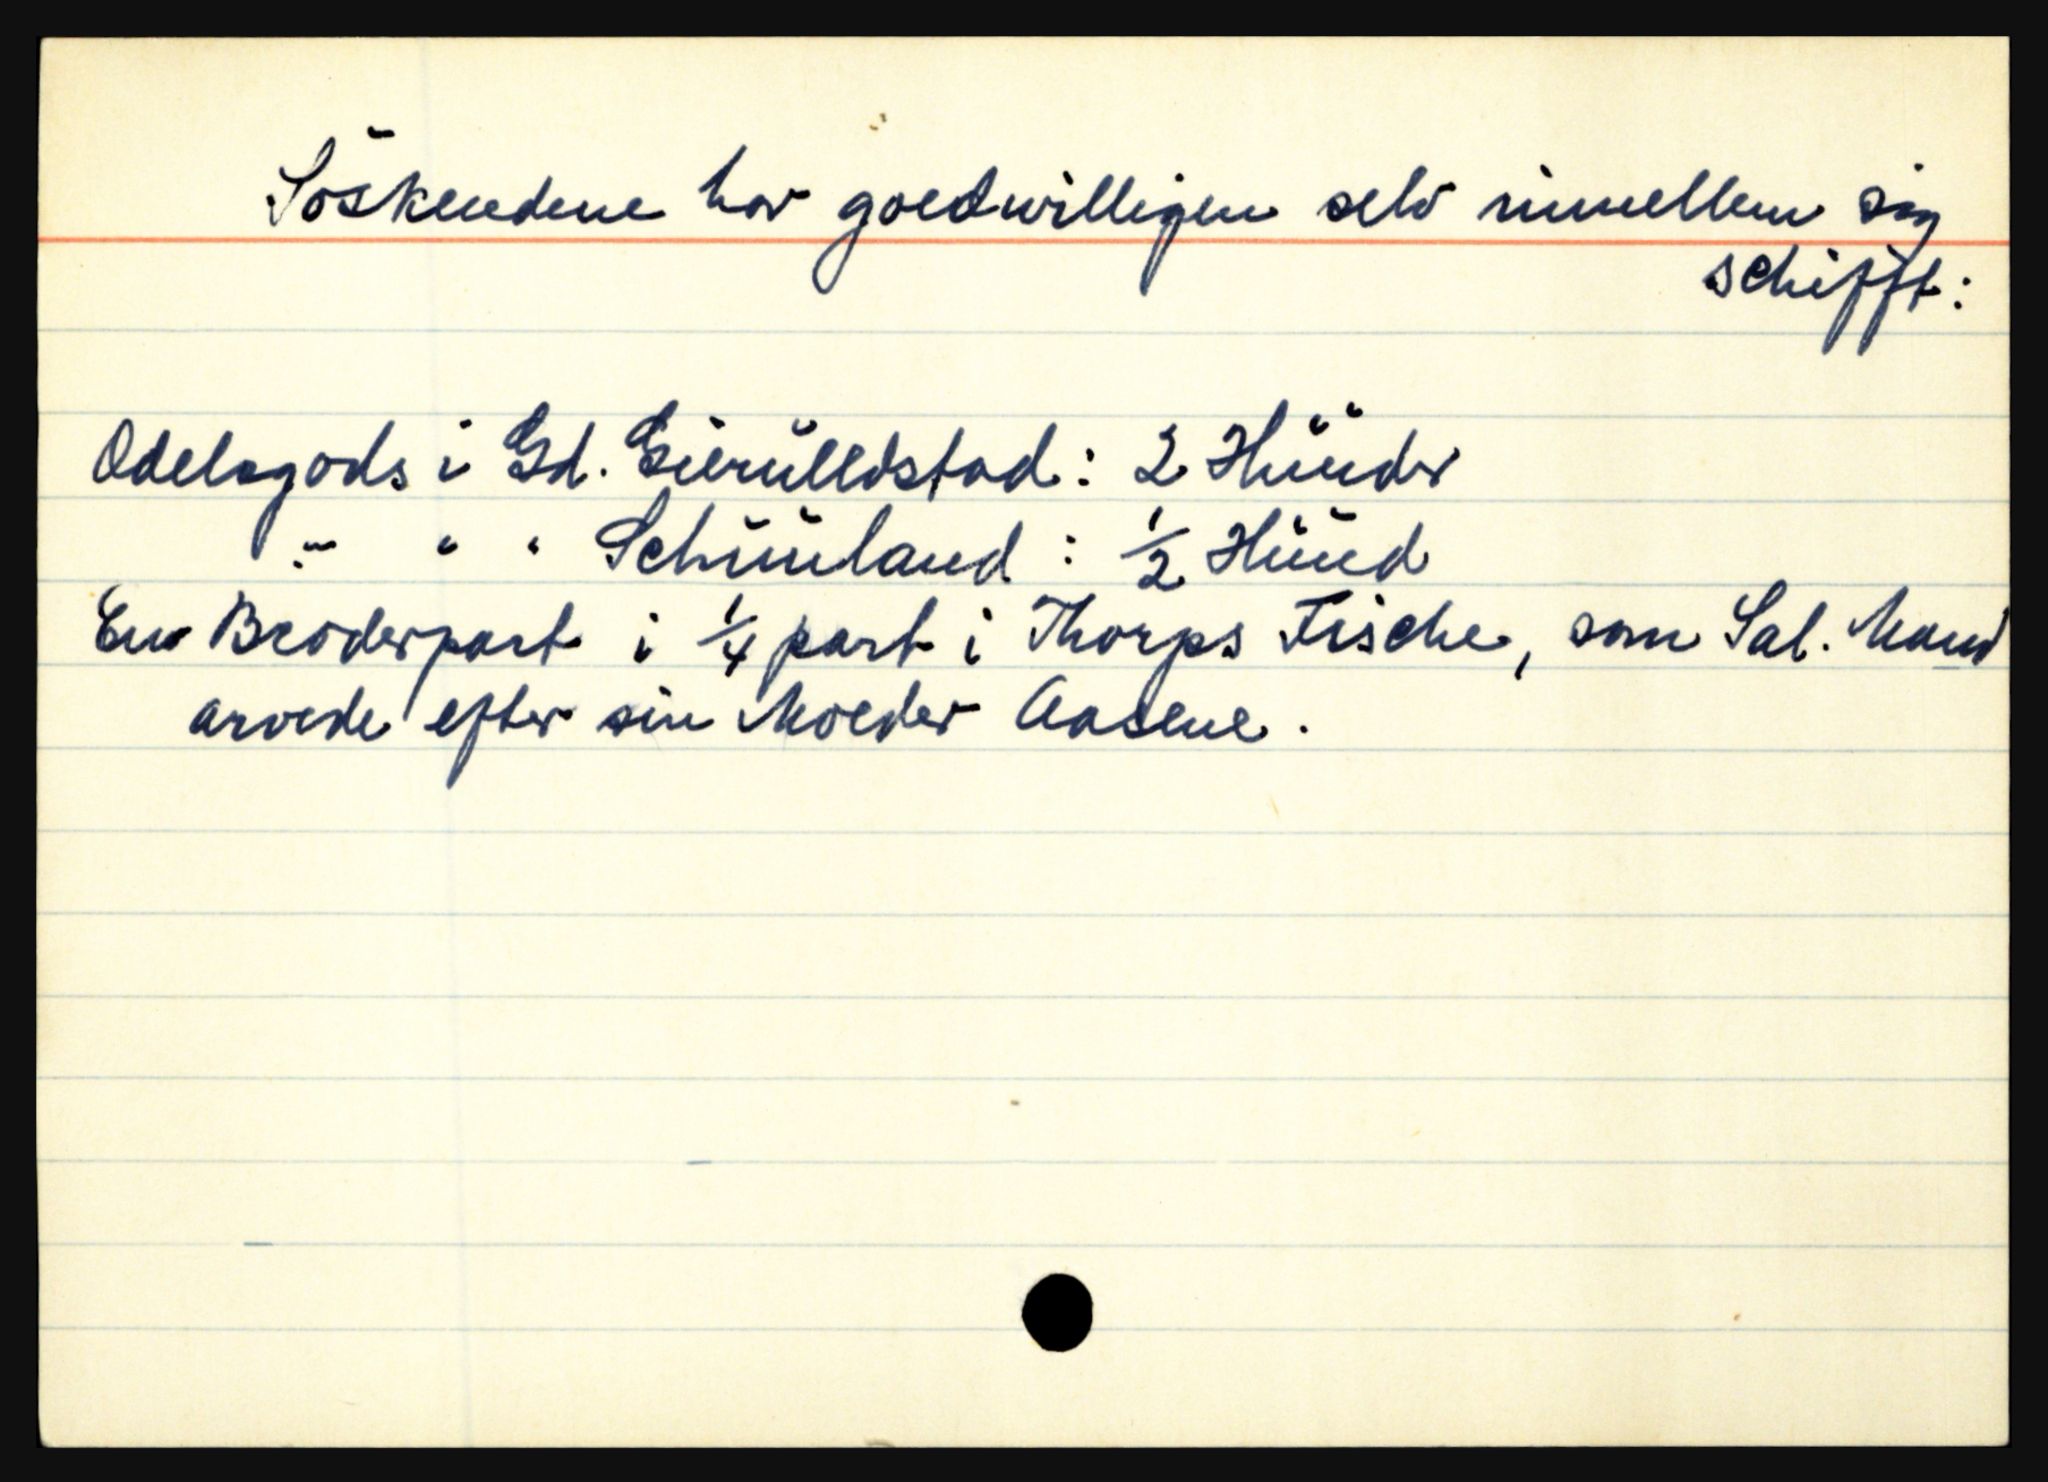 Söskendene har goedwilligen selv immellem sig
schifft:
Odelsgods i Gd. Gierulldstad: 2 Hüüder
" " " Schüüland: ½ Hüüd
En Broderpart i ¼ part i Thorps Fische, som Sal. Mand
arvede efter sin Moeder Aasene.